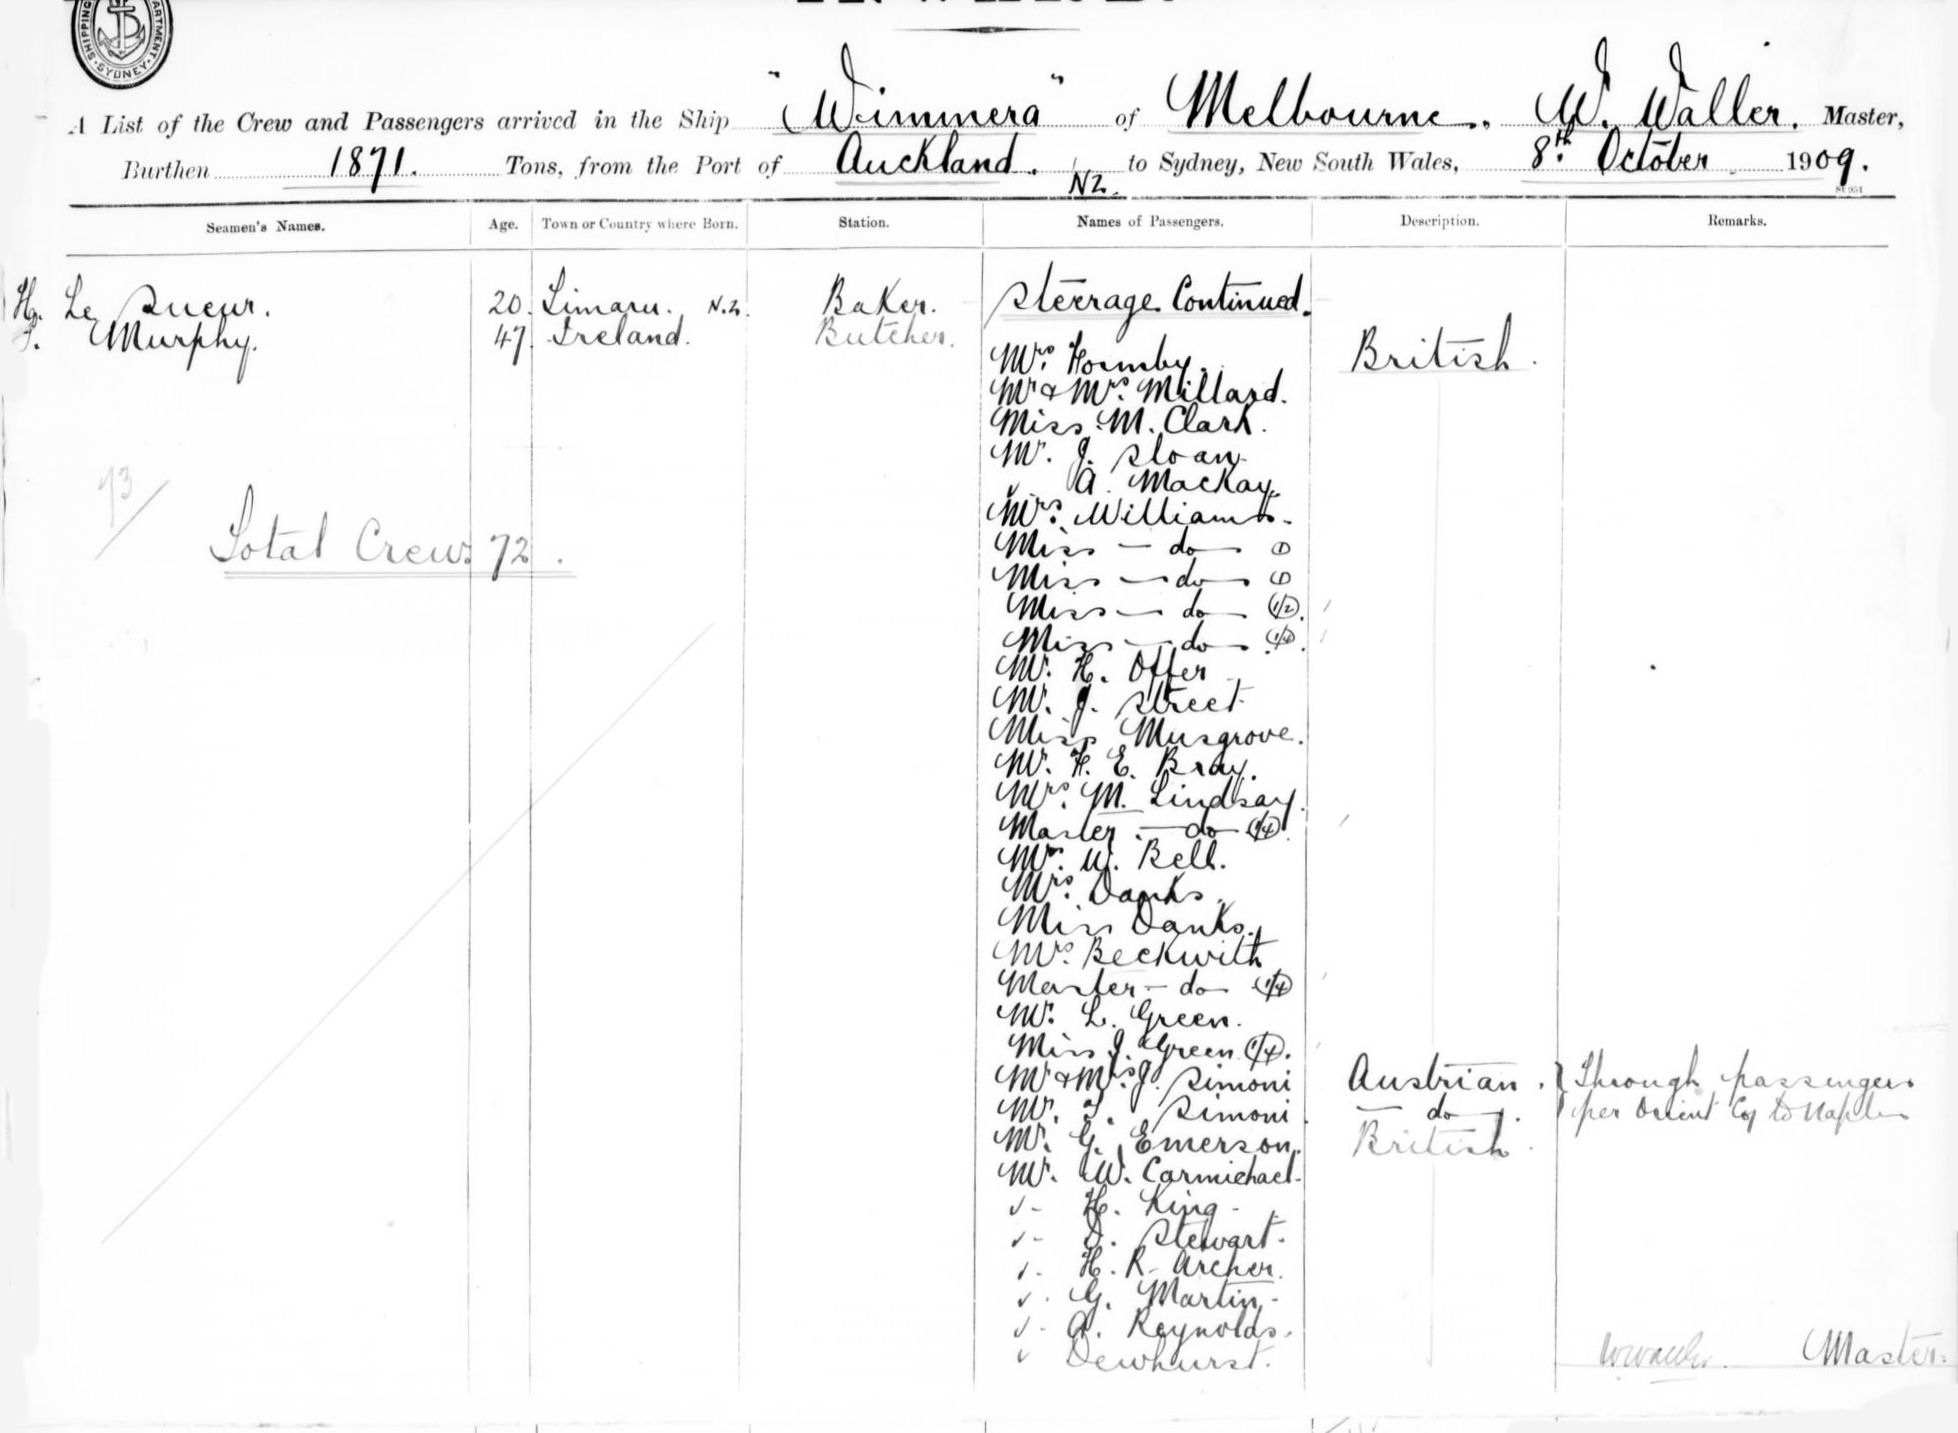 SHIPPING DEPARTMENT SYDNEY
A List of the Crew and Passengers arrived in the Ship "Wimmera" of Melbourne. W. Waller. Master,
Burthen 1871. Tons, from the Port of Auckland. N.Z. to Sydney, New South Wales, 8th October 1909.
Seamen's Names. Age. Town or Country where Born. Station. Names of Passengers. Description. Remarks.
H. Le Sueur. 20. Timaru. N.Z. Baker. Steerage Continued.
Murphy. 47 Ireland. Butcher.
Mrs. Hornby. British.
Mr & Mrs. Millard.
Miss. M. Clark.
Mr. J. Sloan
A. Mackay.
Mrs. Williams.
Miss — do —
Miss — do —
Miss — do — (1/2).
Miss — do —
Mr. H. Offer
Mr. J. Street
Miss Musgrove.
Mr. H. E. Bray.
Mrs. M. Lindsay.
Master — do — (1/4).
Mr. W. Bell.
Mrs. Danks.
Miss Danks.
Mrs. Beckwith
Master — do — (1/4)
Mr. L. Green.
Miss J. Green (1/4).
Mr & Mrs. J. Simoni Austrian. Through passengers
Mr. Simoni. — do —. per Orient Coy to Naples
Mr. G. Emerson. British.
Mr. W. Carmichael.
H. King
Stewart.
H. R. Archer.
G. Martin.
A. Reynolds.
Dewhurst.
73
Total Crew. 72.
W Waller. Master.